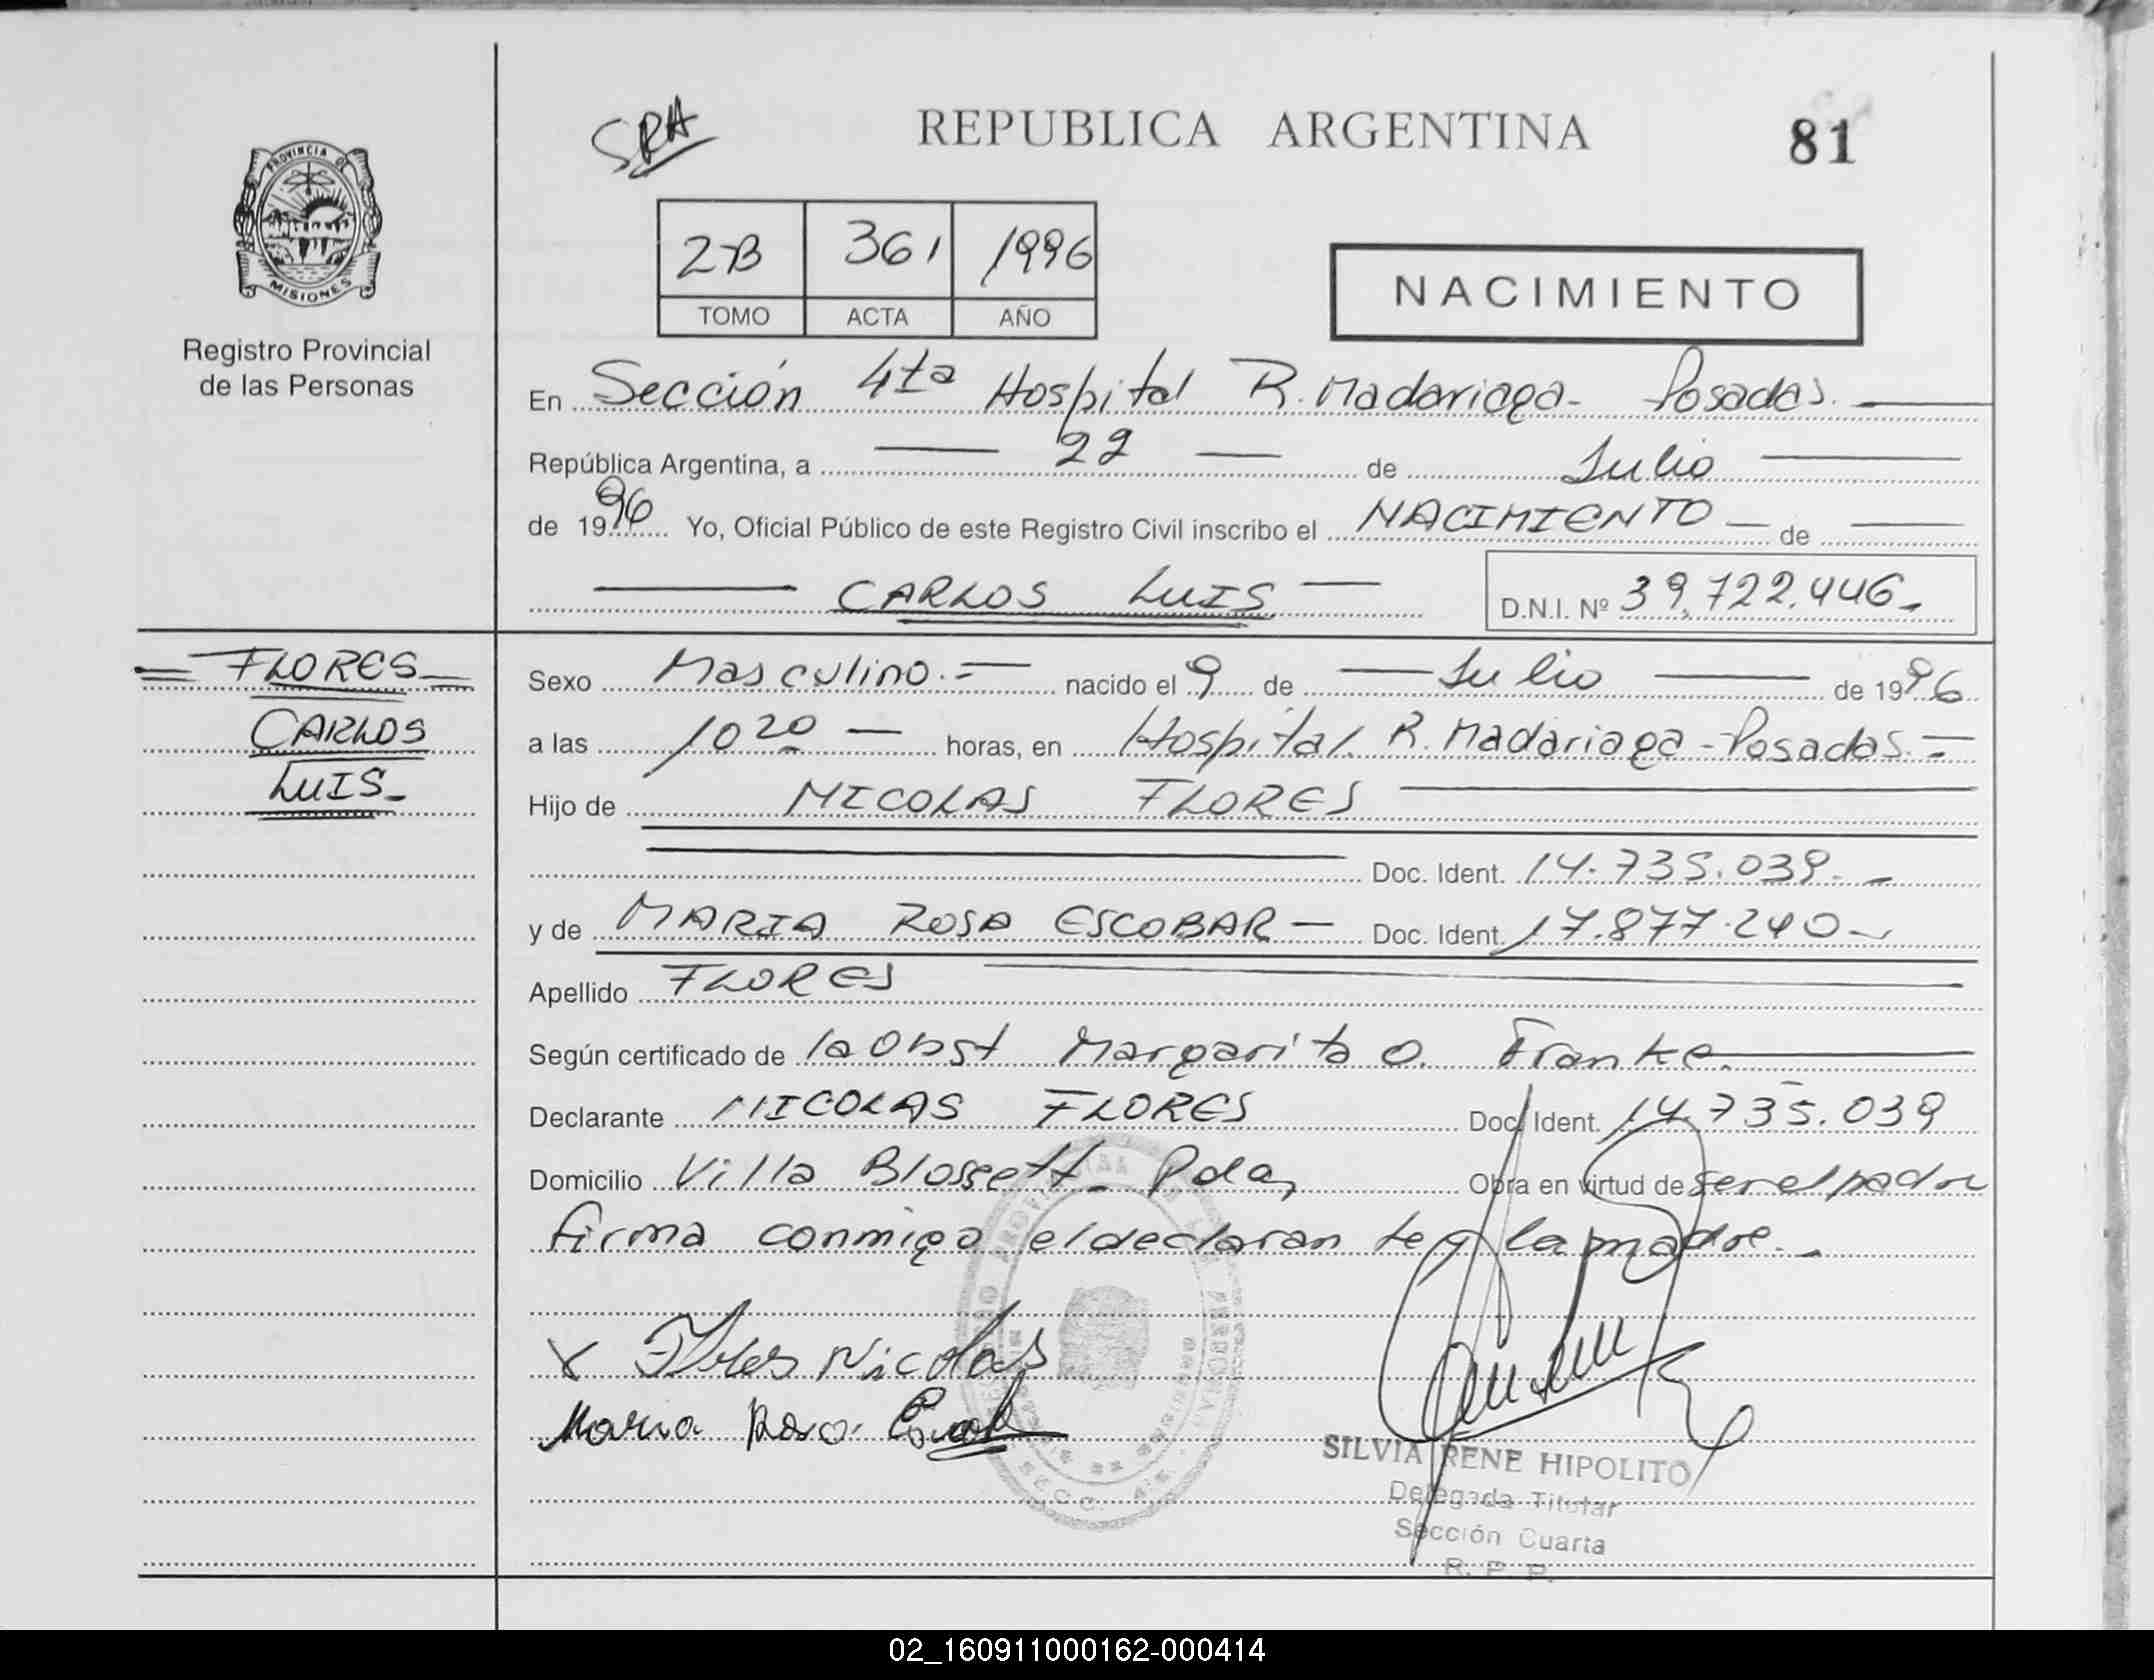 SRH
REPUBLICA ARGENTINA
81
PROVINCIA DE
MISIONES
Registro Provincial
de las Personas
2B 361 1996
TOMO ACTA AÑO
NACIMIENTO
En Sección 4ta Hospital R. Madariaga - Posadas.
República Argentina, a 22 de Julio
de 1996 Yo, Oficial Público de este Registro Civil inscribo el NACIMIENTO de
CARLOS LUIS D.N.I. Nº 39.722.446.
FLORES
CARLOS
LUIS
Sexo Masculino. nacido el 9 de Julio de 1996
a las 10 20 horas, en Hospital R. Madariaga - Posadas.
Hijo de NICOLAS FLORES
Doc. Ident. 14.735.039.
y de MARIA ROSA ESCOBAR Doc. Ident. 17.877.240
Apellido FLORES
Según certificado de la Obst Margarita O. Franke.
Declarante NICOLAS FLORES Doc. Ident. 14.735.039
Domicilio Villa Blossett - Pdas Obra en virtud de ser el padre
firma conmigo el declarante y la madre.
x Flores Nicolas
Maria Rosa
SILVIA RENE HIPOLITO
Delegada Titular
Sección Cuarta
R. P. P.
02_160911000162-000414